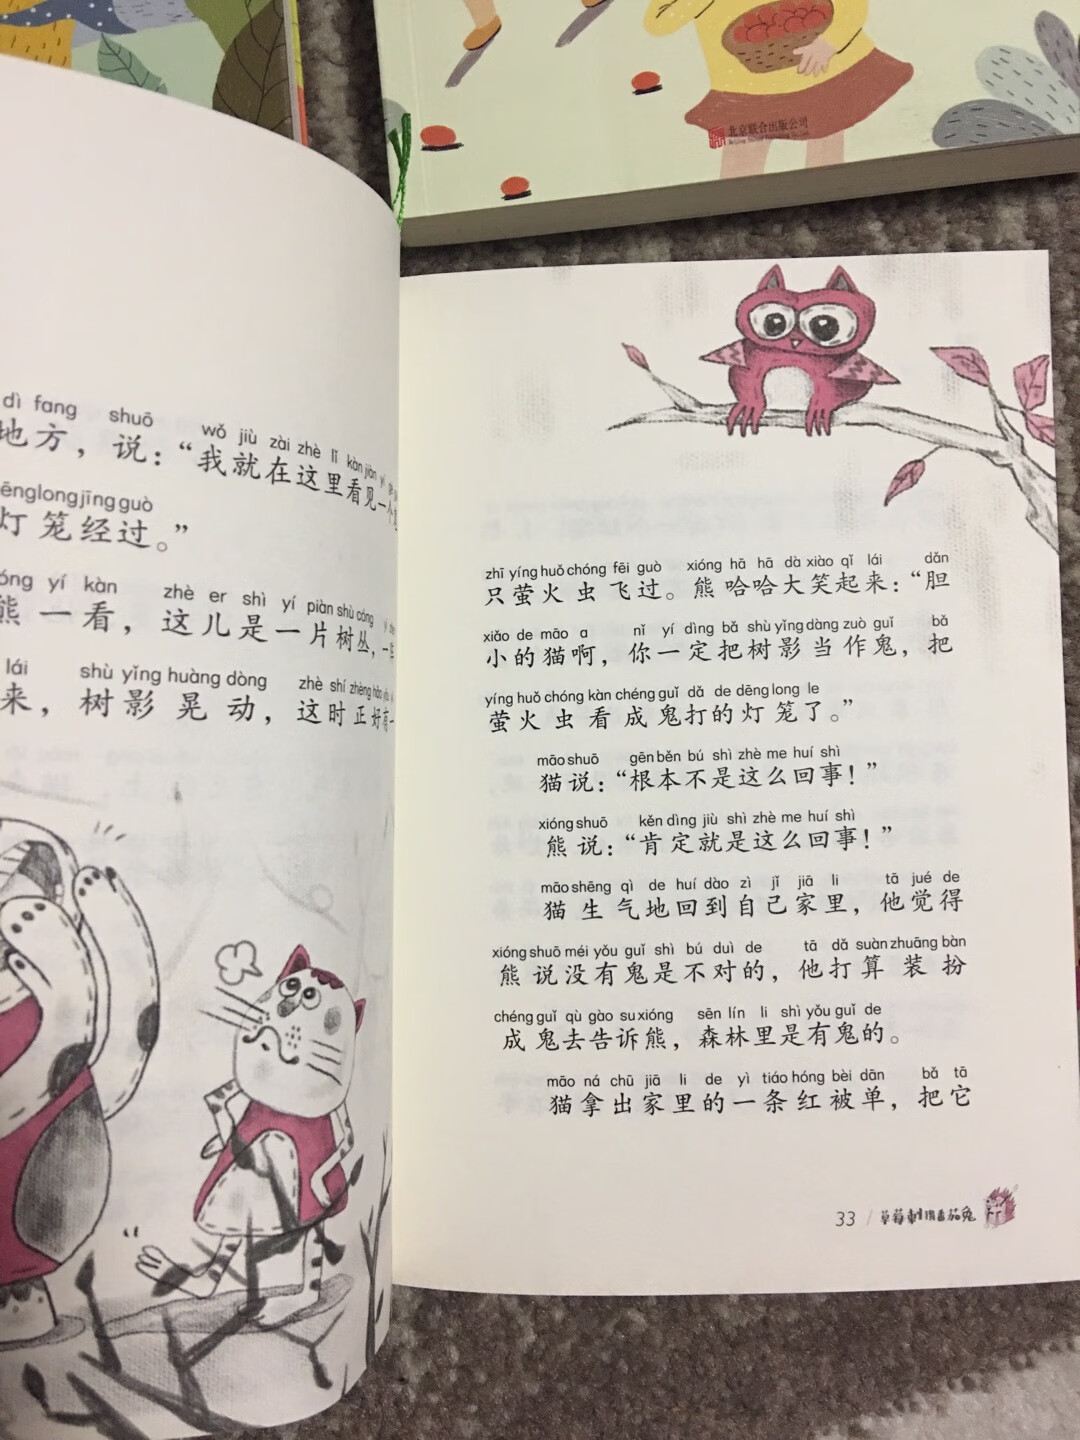 北京联合出版公司
dì fang shuō wǒ jiù zài zhè lǐ kàn jiàn yí
地方，说：“我就在这里看见一个
ēnglongjīng guò
灯笼经过。”
óng yí kàn zhè er shì yí piàn shù cóng
熊一看，这儿是一片树丛，一
lái shù yǐng huàng dòng zhè shí zhèng hǎo
来，树影晃动，这时正好有一
zhī yíng huǒ chóng fēi guò xióng hā hā dà xiào qǐ lái dǎn
只萤火虫飞过。熊哈哈大笑起来：“胆
xiǎo de māo a nǐ yí dìng bǎ shù yǐng dàng zuò guǐ bǎ
小的猫啊，你一定把树影当作鬼，把
yíng huǒ chóng kàn chéng guǐ dǎ de dēng long le
萤火虫看成鬼打的灯笼了。”
māo shuō gēn běn bú shì zhè me huí shì
猫说：“根本不是这么回事！”
xióng shuō kěn dìng jiù shì zhè me huí shì
熊说：“肯定就是这么回事！”
māo shēng qì de huí dào zì jǐ jiā li tā jué de
猫生气地回到自己家里，他觉得
xióng shuō méi yǒu guǐ shì bú duì de tā dǎ suàn zhuāng bàn
熊说没有鬼是不对的，他打算装扮
chéng guǐ qù gào su xióng sēn lín li shì yǒu guǐ de
成鬼去告诉熊，森林里是有鬼的。
māo ná chū jiā li de yì tiáo hóng bèi dān bǎ tā
猫拿出家里的一条红被单，把它
33 / 草莓刺猬番茄兔